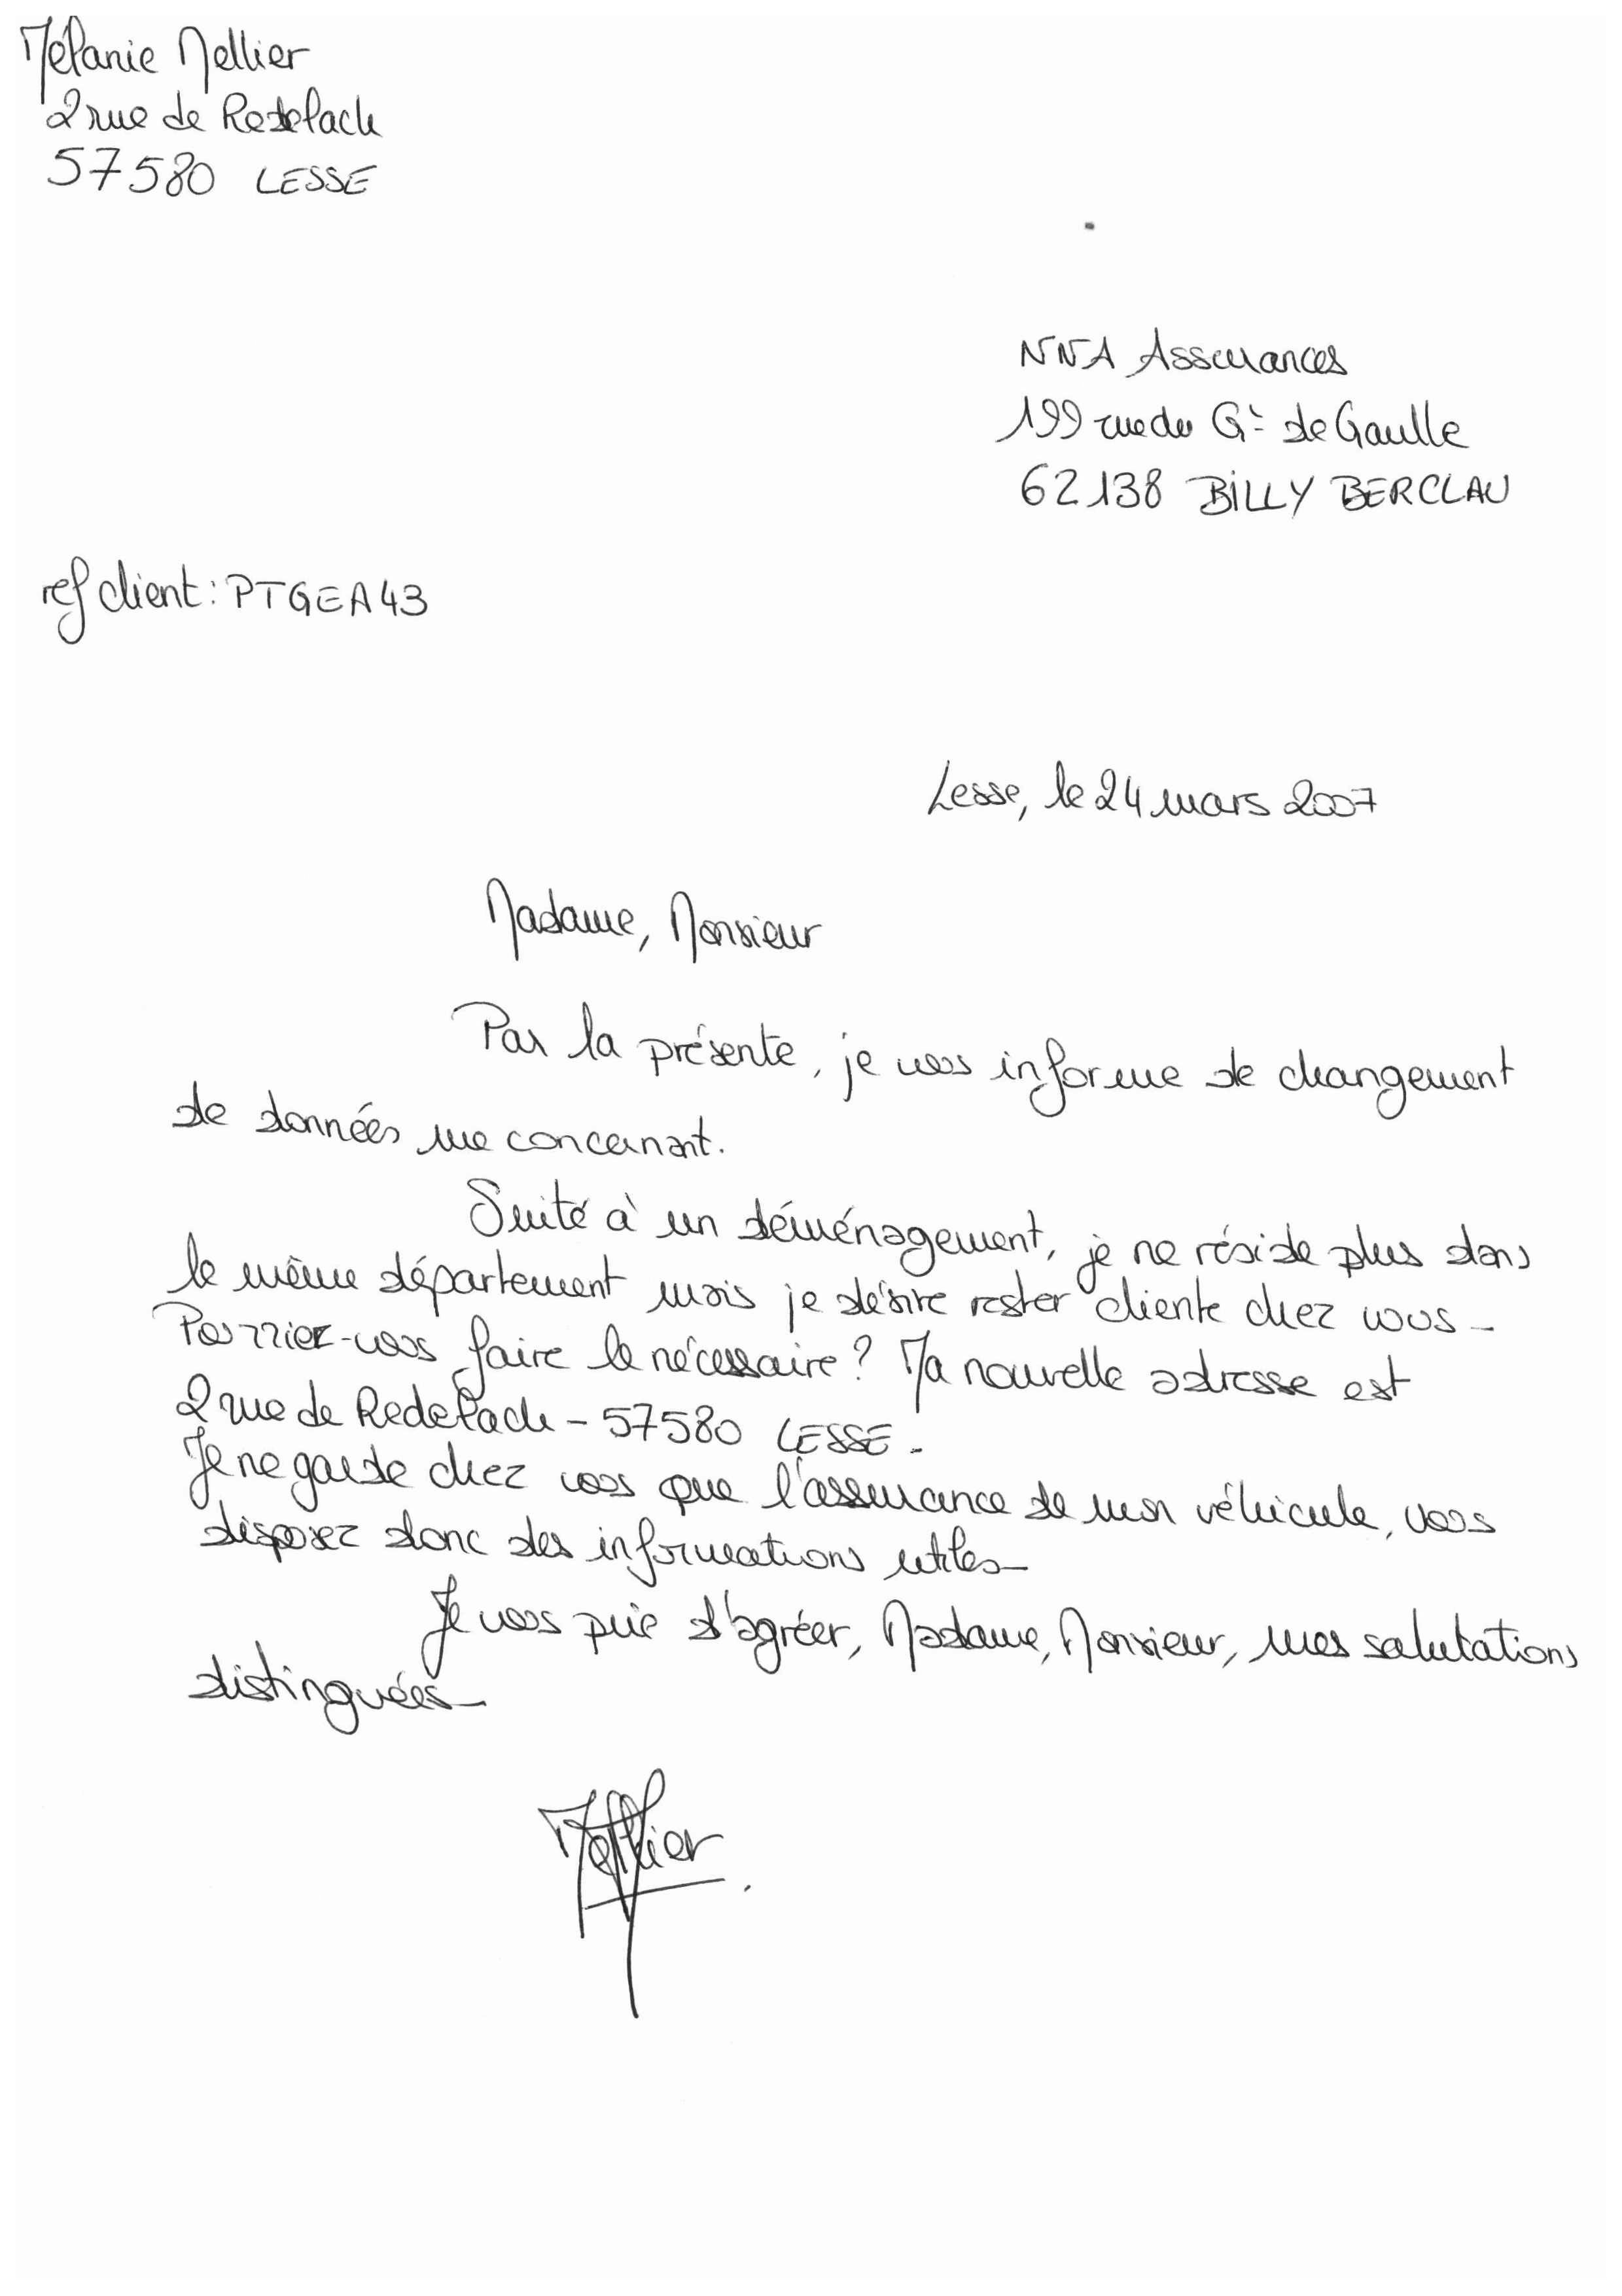 Mélanie Mellier
2 rue de Redelach
57580 LESSE
NNA Assurances
199 rue du Gal de Gaulle
62138 BILLY BERCLAU
ref client : PTGEA43
Lesse, le 24 mars 2007
Madame, Monsieur
Par la présente, je vous informe de changement
de données me concernant.
Suite à un déménagement, je ne réside plus dans
le même département mais je désire rester cliente chez vous -
Pourriez-vous faire le nécessaire ? Ma nouvelle adresse est
2 rue de Redelach - 57580 LESSE -
Je ne garde chez vous que l'assurance de mon véhicule, vous
disposez donc des informations utiles -
Je vous prie d'agréer, Madame, Monsieur, mes salutations
distinguées -
Mellier